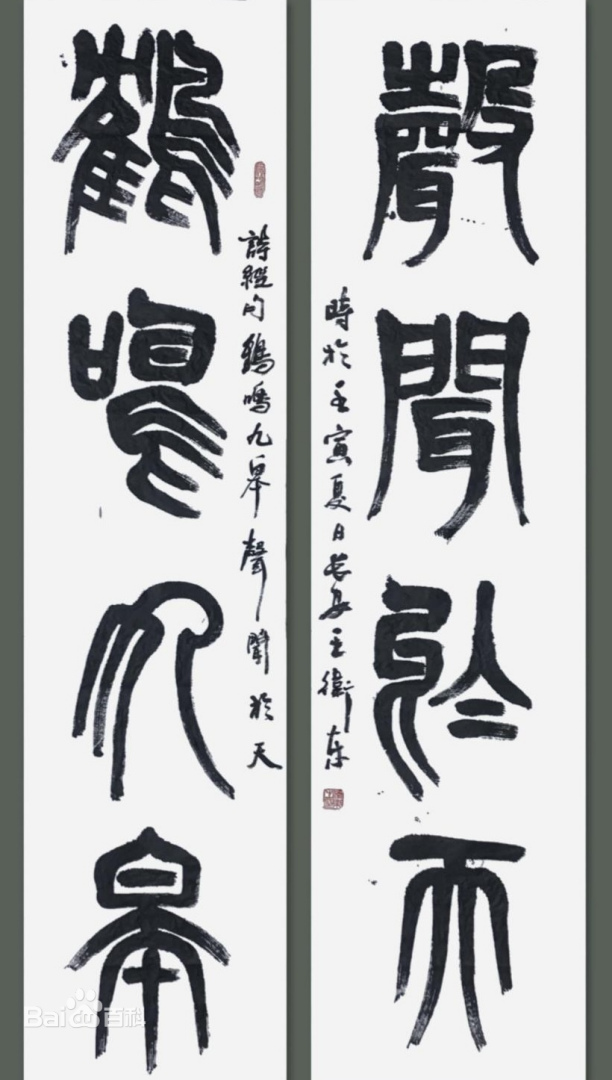 鶴鳴九皋
詩經句鶴鳴九皋聲聞於天
聲聞於天
時於壬寅夏日長安王衛東
Bai百科